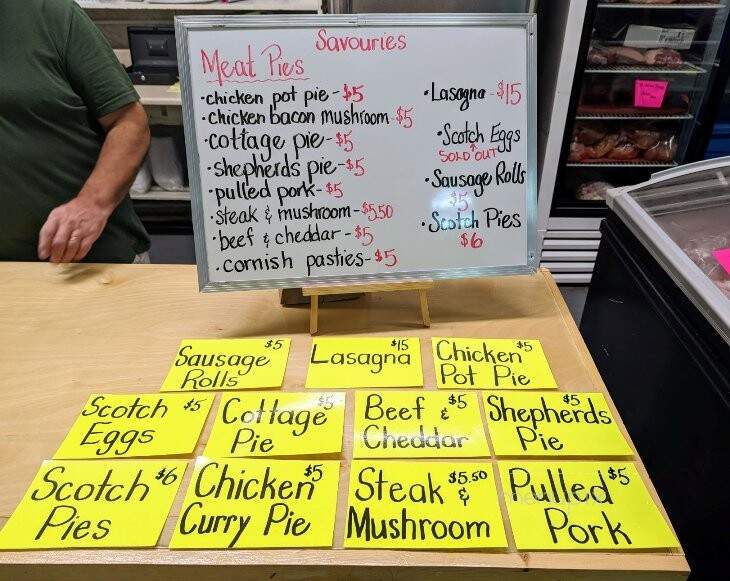 Savouries
Meat Pies
•chicken pot pie-$5
•chicken bacon mushroom-$5
•cottage pie-$5
•shepherds pie-$5
•pulled pork-$5
•steak & mushroom-$5.50
•beef & cheddar-$5
•cornish pasties-$5
•Lasagna-$15
•Scotch Eggs
SOLD OUT
•Sausage Rolls
$5
•Scotch Pies
$6
Sausage $5
Rolls
Lasagna $15
Chicken $5
Pot Pie
Scotch $5
Eggs
Cottage $5
Pie
Beef & $5
Cheddar
Shepherds $5
Pie
Scotch $6
Pies
Chicken $5
Curry Pie
Steak & $5.50
Mushroom
Pulled $5
Pork